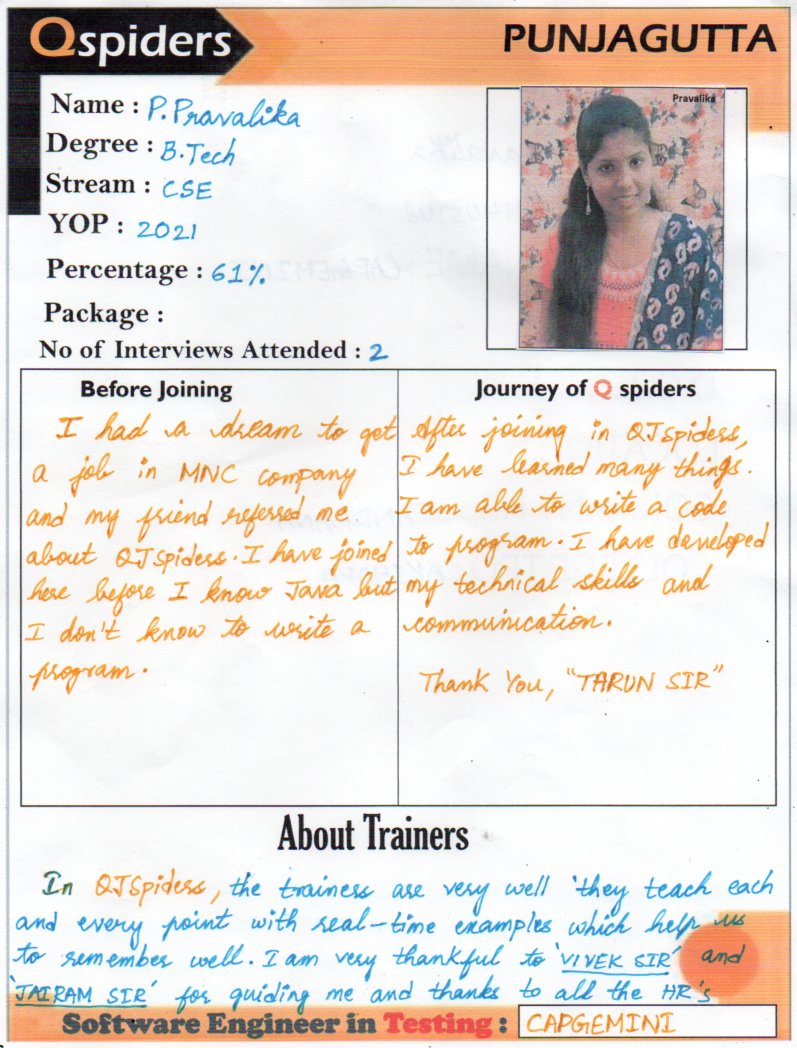 Qspiders
PUNJAGUTTA
Name : P. Pravalika
Degree : B.Tech
Stream : CSE
YOP : 2021
Percentage : 61%
Package :
No of Interviews Attended : 2
Pravalika
Before Joining
I had a dream to get
a job in MNC company
and my friend referred me
about QJSpiders. I have joined
here before I know Java but
I don't know to write a
program.
Journey of Q spiders
After joining in QJSpiders,
I have learned many things.
I am able to write a code
to program. I have developed
my technical skills and
communication.
Thank You, "TARUN SIR"
About Trainers
In QJSpiders, the trainers are very well 'they teach each
and every point with real-time examples which help us
to remember well. I am very thankful to 'VIVEK SIR' and
'JAIRAM SIR' for guiding me and thanks to all the HR's
Software Engineer in Testing : CAPGEMINI